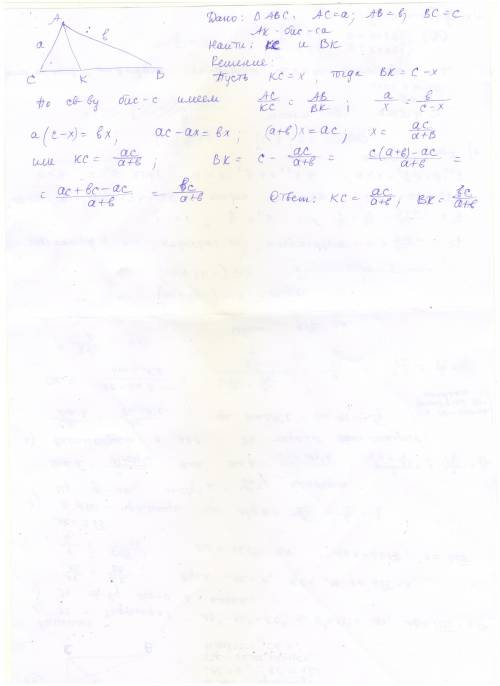 A
a
b
C
K
B
Дано: △ ABC. AC=a; AB=b, BC=c
AK - бис-са
Найти: KC и BK
Решение:
Пусть KC=x, тогда BK=c-x
По св-ву бис-с имеем AC/KC = AB/BK ; a/x = b/(c-x)
a(c-x)=bx, ac-ax=bx; (a+b)x=ac; x= ac/(a+b)
или KC= ac/(a+b); BK= c- ac/(a+b) = (c(a+b)-ac)/(a+b) =
= (ac+bc-ac)/(a+b) = bc/(a+b) Ответ: KC= ac/(a+b); BK= bc/(a+b)